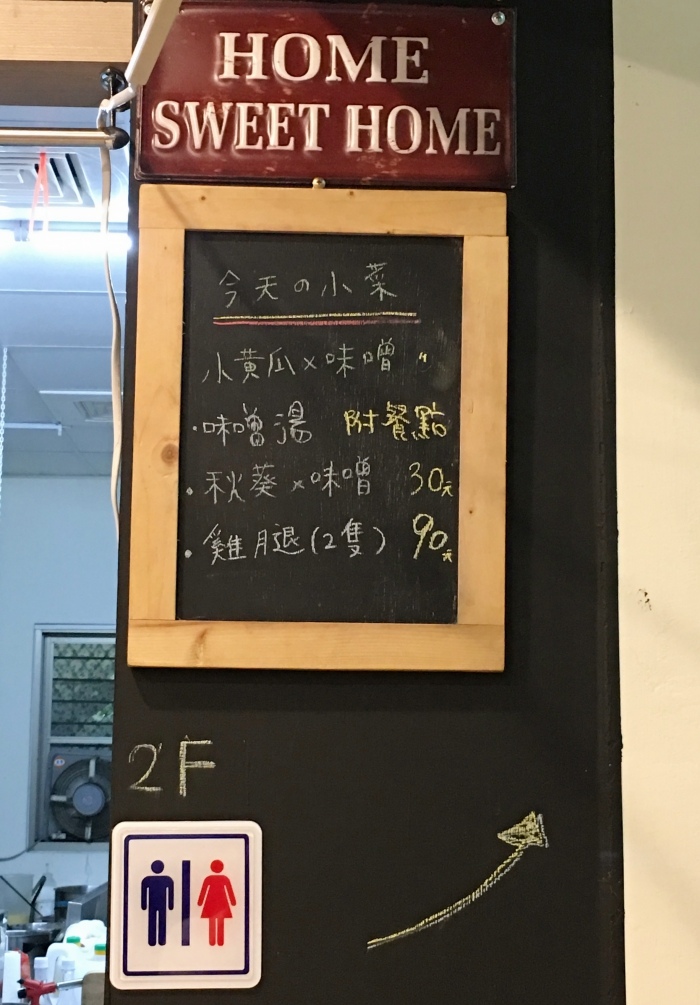 HOME
SWEET HOME
今天の小菜
小黃瓜×味噌 〃
·味噌湯 附餐點
·秋葵×味噌 30元
·雞腿(2隻) 90元
2F